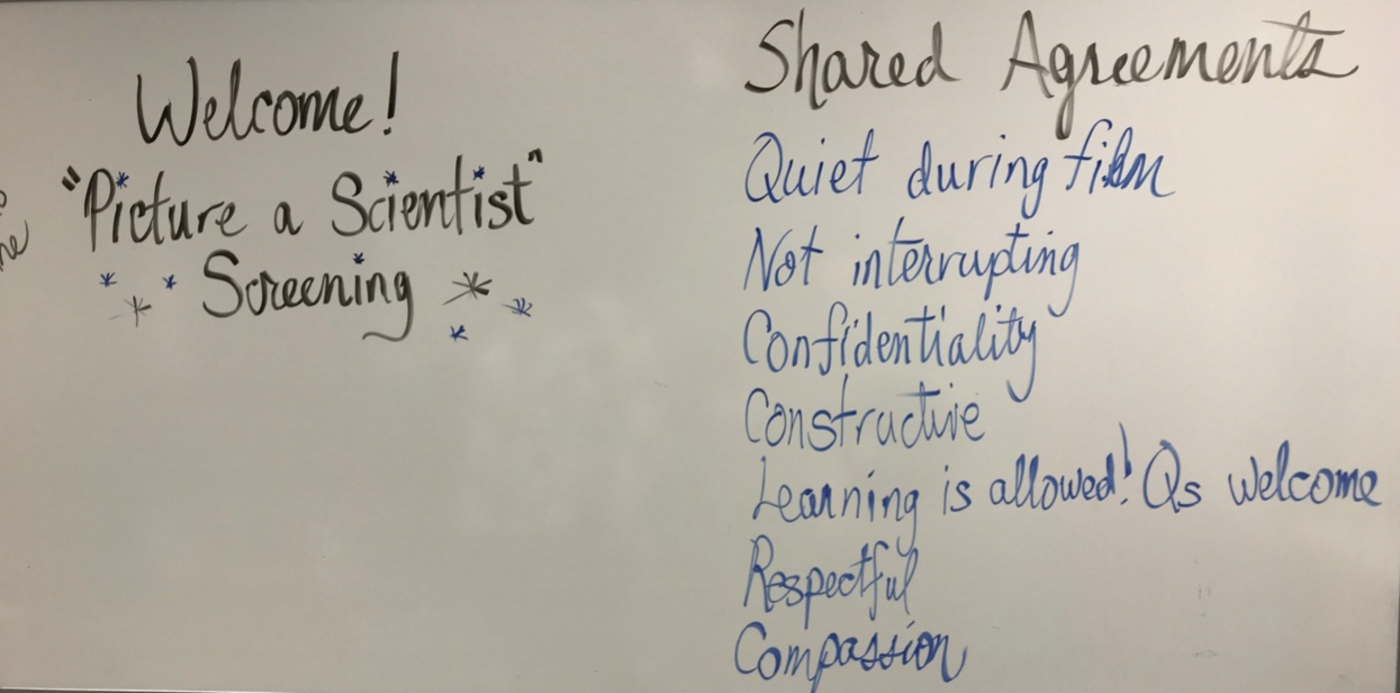 Welcome!
"Picture a Scientist"
Screening
Shared Agreements
Quiet during film
Not interrupting
Confidentiality
Constructive
Learning is allowed! Qs welcome
Respectful
Compassion